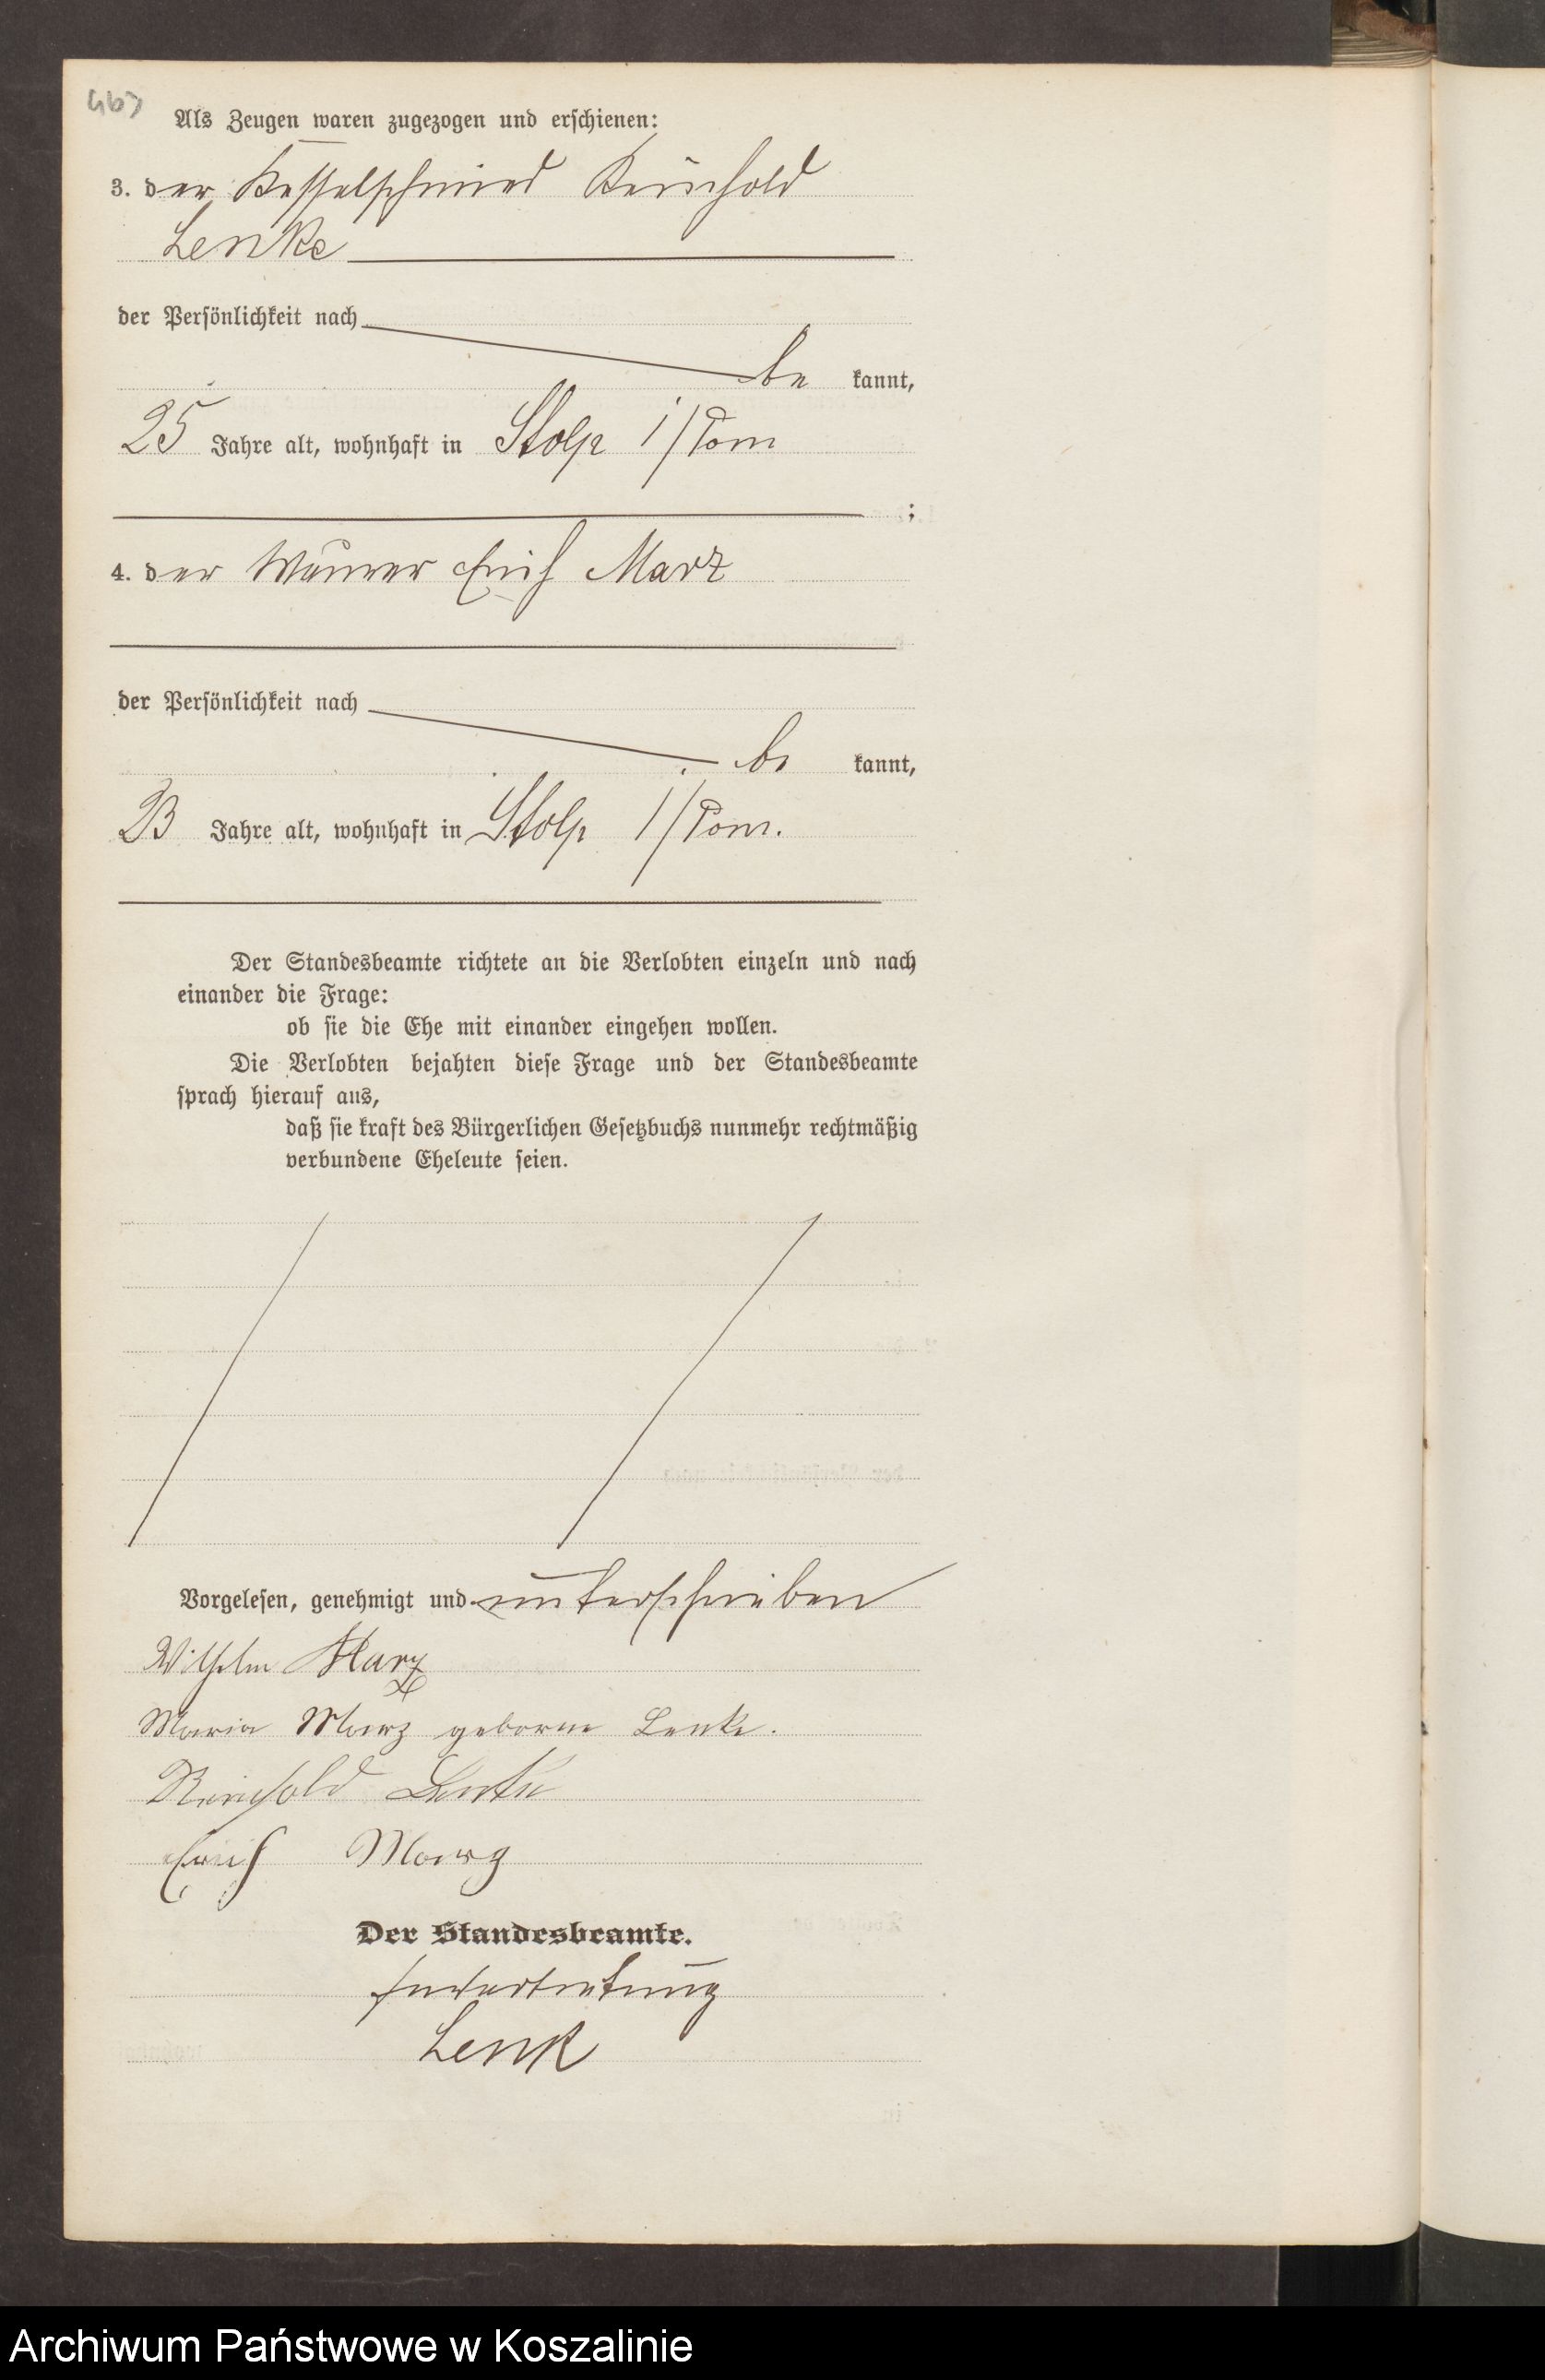 Als Zeugen waren zugezogen und erschienen:
3. der Kesselschmied Reinhold
Lenke
der Persönlichkeit nach
be kannt,
25 Jahre alt, wohnhaft in Stolp i/Pom
;
4. der Maurer Erich Marz
der Persönlichkeit nach
be kannt,
23 Jahre alt, wohnhaft in Stolp i/Pom.
Der Standesbeamte richtete an die Verlobten einzeln und nach
einander die Frage:
ob sie die Ehe mit einander eingehen wollen.
Die Verlobten bejahten diese Frage und der Standesbeamte
sprach hierauf aus,
daß sie kraft des Bürgerlichen Gesetzbuchs nunmehr rechtmäßig
verbundene Eheleute seien.
Vorgelesen, genehmigt und unterschrieben
Wilhelm Marz
Maria Marz geborne Lenke.
Reinhold Lenke
Erich Marz
Der Standesbeamte.
In Vertretung
Lenk
Archiwum Państwowe w Koszalinie